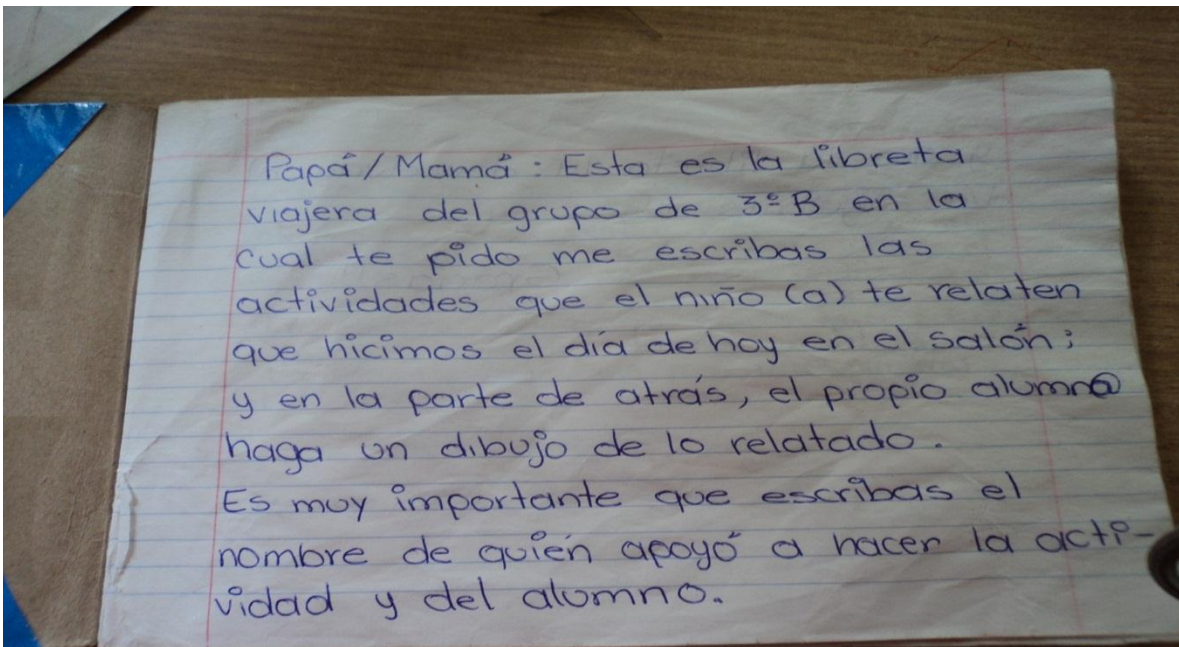 Papá/Mamá: Esta es la libreta
viajera del grupo de 3º B en la
cual te pido me escribas las
actividades que el niño (a) te relaten
que hicimos el día de hoy en el salón;
y en la parte de atrás, el propio alumn@
haga un dibujo de lo relatado.
Es muy importante que escribas el
nombre de quién apoyó a hacer la acti-
vidad y del alumno.